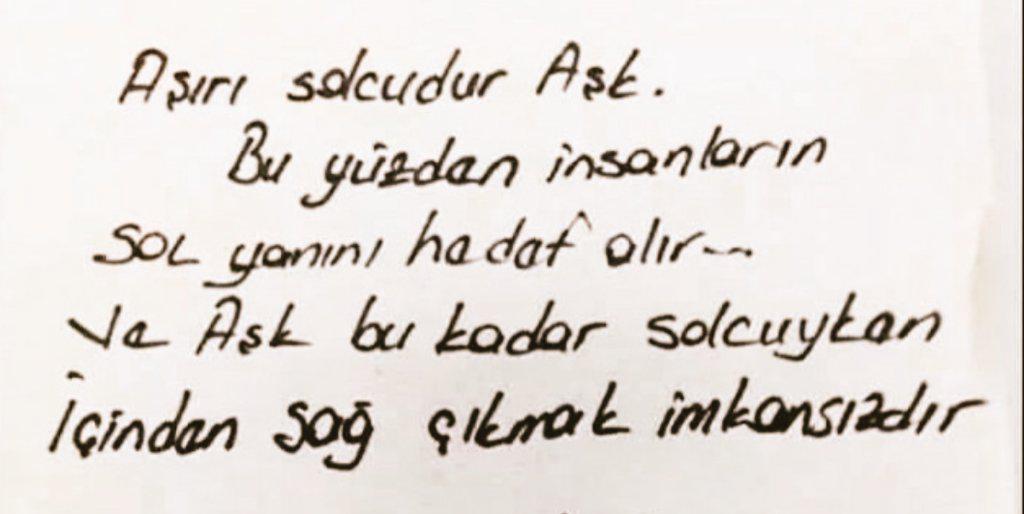 Aşırı solcudur Aşk.
Bu yüzden insanların
SOL yanını hedef alır...
Ve Aşk bu kadar solcuyken
İçinden sağ çıkmak imkansızdır